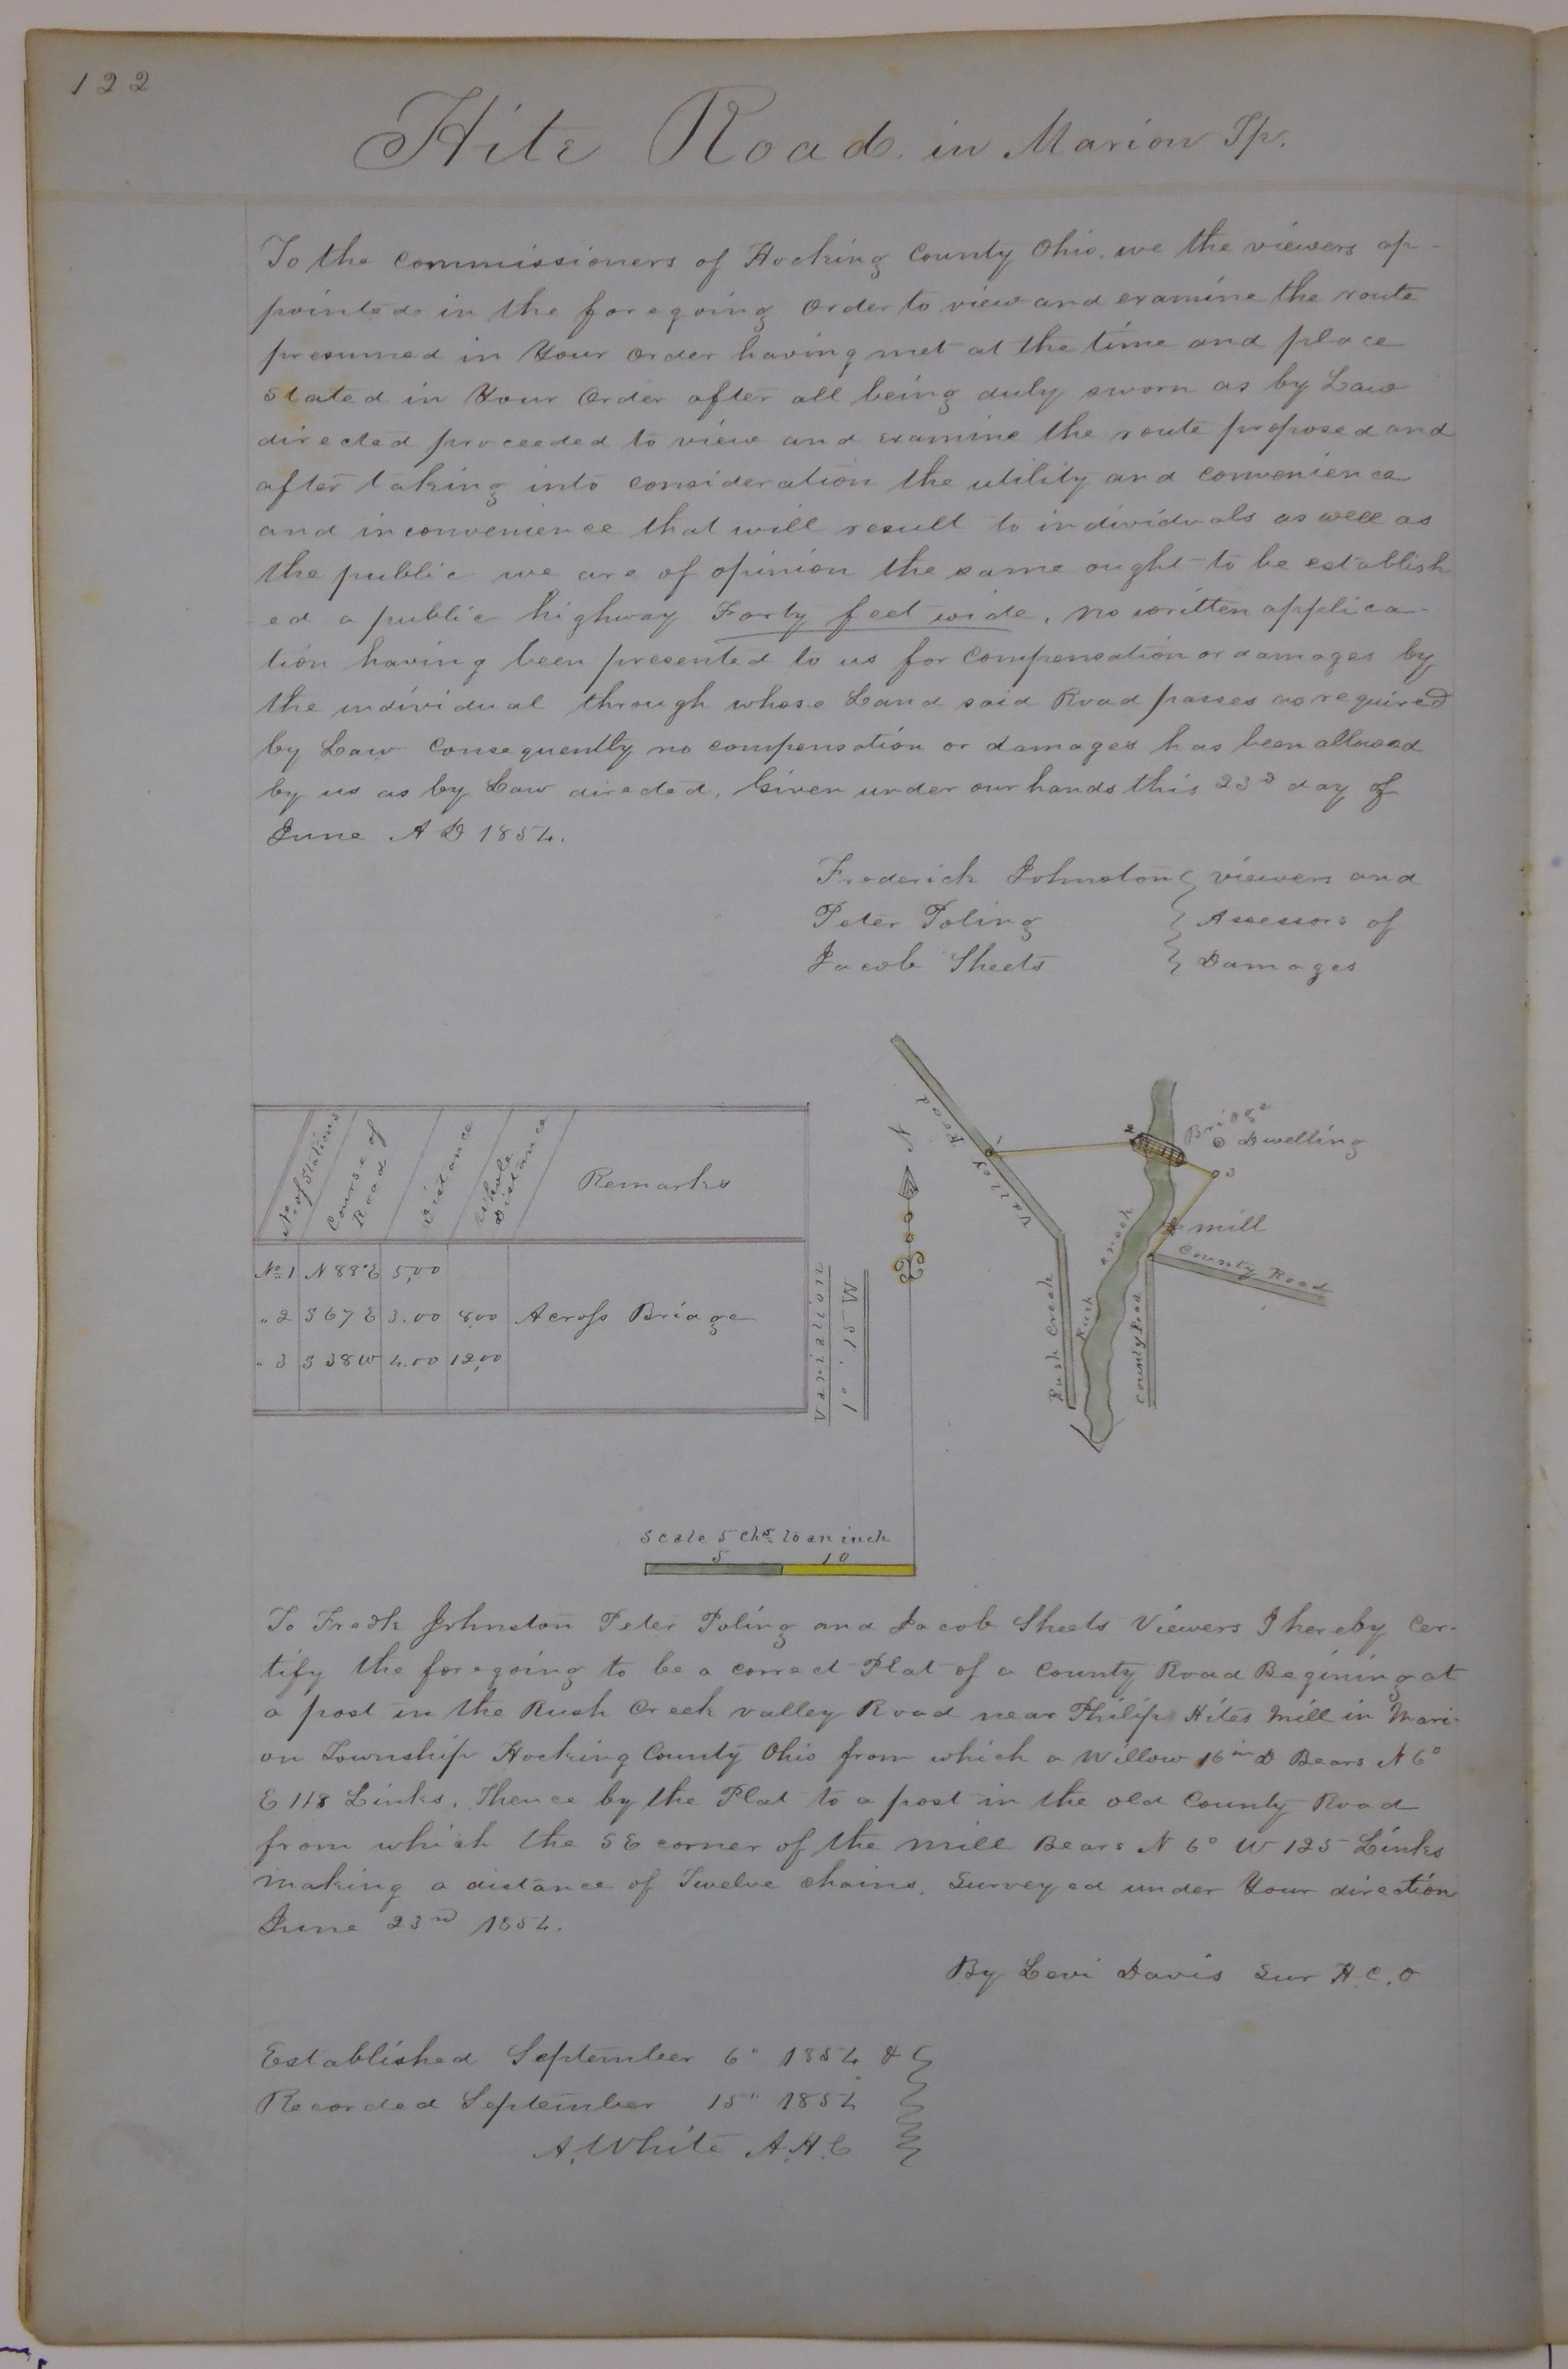 122
Hite Road in Marion Tp.
To the commissioners of Hocking County Ohio. we the viewers ap-
pointed in the foregoing order to view and examine the route
presumed in Your order having met at the time and place
Stated in Your Order after all being duly sworn as by Law
directed proceeded to view and examine the route proposed and
after taking into consideration the utility and convenience
and inconvenience that will result to individuals as well as
the public we are of opinion the same ought to be establish
ed a public highway Forty feet wide, no written applica-
tion having been presented to us for compensation or damages by
the individual through whose Land said Road passes as required
by Law Consequently no compensation or damages has been allowed
by us as by Law directed. Given under our hands this 23d day of
June A D 1854.
Frederick Johnston } viewers and
Peter Poling } Assessors of
Jacob Sheets } Damages
No of Stations Course of Road Distance Whole Distance Remarks
No 1 N 88° E 5,00
" 2 S 67 E 3.00 8.00 Across Bridge
" 3 S 38 W 4.00 12,00
Variation
1° . 15 W
N
Valley Road
1
2
Bridge
Dwelling
3
mill
County Road
Rush Creek
Rush creek
County Road
Scale 5 chs. to an inch
5 10
To Fredk Johnston Peter Poling and Jacob Sheets Viewers I hereby Cer-
tify the foregoing to be a correct Plat of a County Road Begining at
a post in the Rush Creek valley Road near Philip Hites Mill in Mari-
on Township Hocking County Ohio from which a Willow 16 in D Bears N 6°
E 118 Links. Thence by the Plat to a post in the old County Road
from which the S E corner of the mill Bears N 6° W 125 Links
making a distance of Twelve chains. Surveyed under Your direction
June 23rd 1854.
By Levi Davis Sur H. C. O
Established September 6" 1854 &
Recorded September 15" 1854
A. White A. H. C